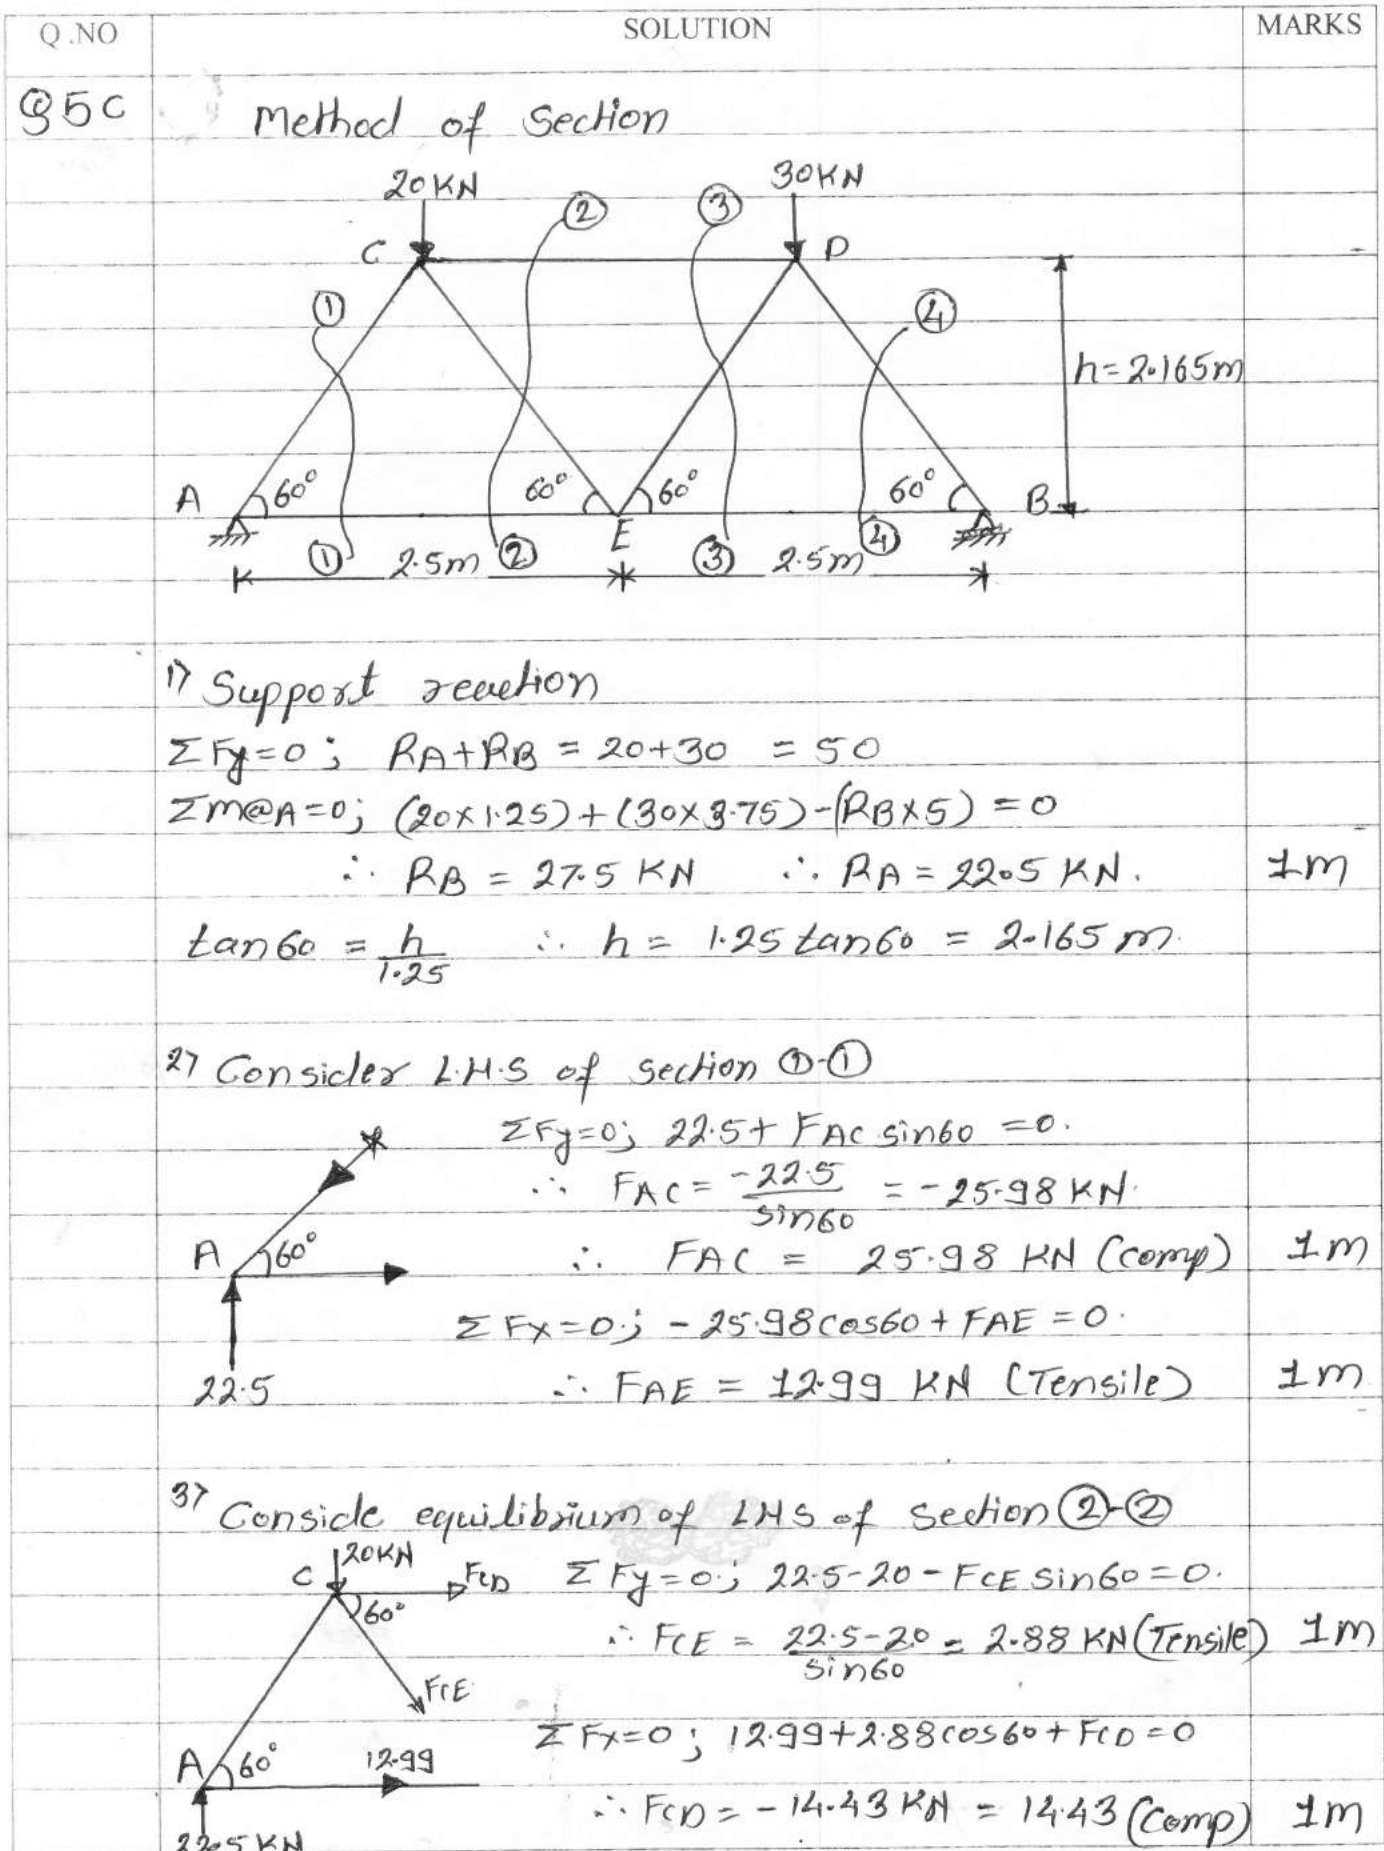 Q.NO SOLUTION MARKS
Q5C Method of Section
20KN 30KN
② ③
C D
① ④
h=2.165m
A 60° 60° 60° 60° B
E
① 2.5m ② ③ 2.5m ④
1) Support reaction
ΣFy=0; RA+RB = 20+30 = 50
Σm@A=0; (20×1.25)+(30×3.75)-(RB×5)=0
∴ RB = 27.5 KN ∴ RA = 22.5 KN. 1m
tan60 = h/1.25 ∴ h = 1.25 tan60 = 2.165 m.
2) Consider L.H.S of section ①-①
ΣFy=0; 22.5+ FAC sin60 =0.
∴ FAC = -22.5/sin60 = -25.98 KN.
A 60° ∴ FAC = 25.98 KN (comp) 1m
ΣFx=0; -25.98cos60+FAE=0.
22.5 ∴ FAE = 12.99 KN (Tensile) 1m
3) Conside equilibrium of LHS of section ②-②
C 20KN FCD ΣFy=0; 22.5-20-FCE sin60=0.
60° ∴ FCE = 22.5-20/sin60 = 2.88 KN (Tensile) 1m
FCE
ΣFx=0; 12.99+2.88cos60+FCD=0
A 60° 12.99
∴ FCD = -14.43 KN = 14.43 (comp) 1m
22.5 KN